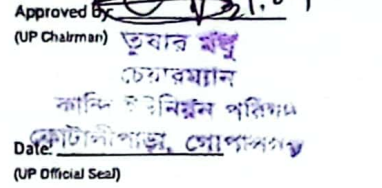 Approved by
(UP Chairman) তুষার মধু
চেয়ারম্যান
কান্দি ইউনিয়ন পরিষদ
Date: কোটালীপাড়া, গোপালগঞ্জ
(UP Official Seal)